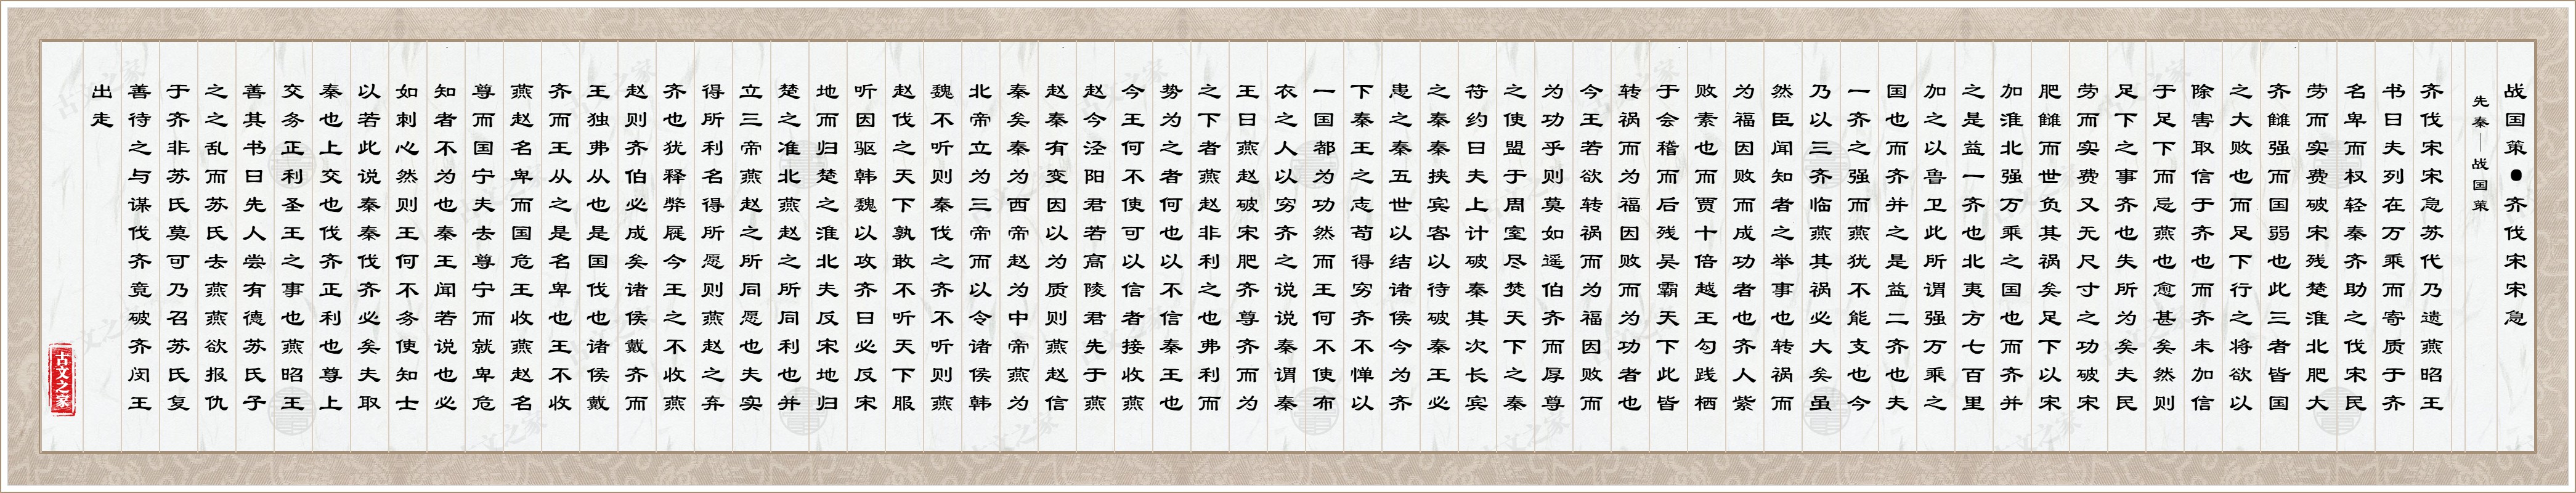 战国策●齐伐宋宋急
先秦——战国策
齐伐宋宋急苏代乃遗燕昭王
书曰夫列在万乘而寄质于齐
名卑而权轻秦齐助之伐宋民
劳而实费破宋残楚淮北肥大
齐雠强而国弱也此三者皆国
之大败也而足下行之将欲以
除害取信于齐也而齐未加信
于足下而忌燕也愈甚矣然则
足下之事齐也失所为矣夫民
劳而实费又无尺寸之功破宋
肥雠而世负其祸矣足下以宋
加淮北强万乘之国也而齐并
之是益一齐也北夷方七百里
加之以鲁卫此所谓强万乘之
国也而齐并之是益二齐也夫
一齐之强而燕犹不能支也今
乃以三齐临燕其祸必大矣虽
然臣闻知者之举事也转祸而
为福因败而成功者也齐人紫
败素也而贾十倍越王勾践栖
于会稽而后残吴霸天下此皆
转祸而为福因败而为功者也
今王若欲转祸而为福因败而
为功乎则莫如遥伯齐而厚尊
之使盟于周室尽焚天下之秦
符约曰夫上计破秦其次长宾
之秦秦挟宾客以待破秦王必
患之秦五世以结诸侯今为齐
下秦王之志苟得穷齐不惮以
一国都为功然而王何不使布
衣之人以穷齐之说说秦谓秦
王曰燕赵破宋肥齐尊齐而为
之下者燕赵非利之也弗利而
势为之者何也以不信秦王也
今王何不使可以信者接收燕
赵今泾阳君若高陵君先于燕
赵秦有变因以为质则燕赵信
秦矣秦为西帝赵为中帝燕为
北帝立为三帝而以令诸侯韩
魏不听则秦伐之齐不听则燕
赵伐之天下孰敢不听天下服
听因驱韩魏以攻齐曰必反宋
地而归楚之淮北夫反宋地归
楚之准北燕赵之所同利也并
立三帝燕赵之所同愿也夫实
得所利名得所愿则燕赵之弃
齐也犹释弊屣今王之不收燕
赵则齐伯必成矣诸侯戴齐而
王独弗从也是国伐也诸侯戴
齐而王从之是名卑也王不收
燕赵名卑而国危王收燕赵名
尊而国宁夫去尊宁而就卑危
知者不为也秦王闻若说也必
如刺心然则王何不务使知士
以若此说秦秦伐齐必矣夫取
秦也上交也伐齐正利也尊上
交务正利圣王之事也燕昭王
善其书曰先人尝有德苏氏子
之之乱而苏氏去燕燕欲报仇
于齐非苏氏莫可乃召苏氏复
善待之与谋伐齐竟破齐闵王
出走
古文之家